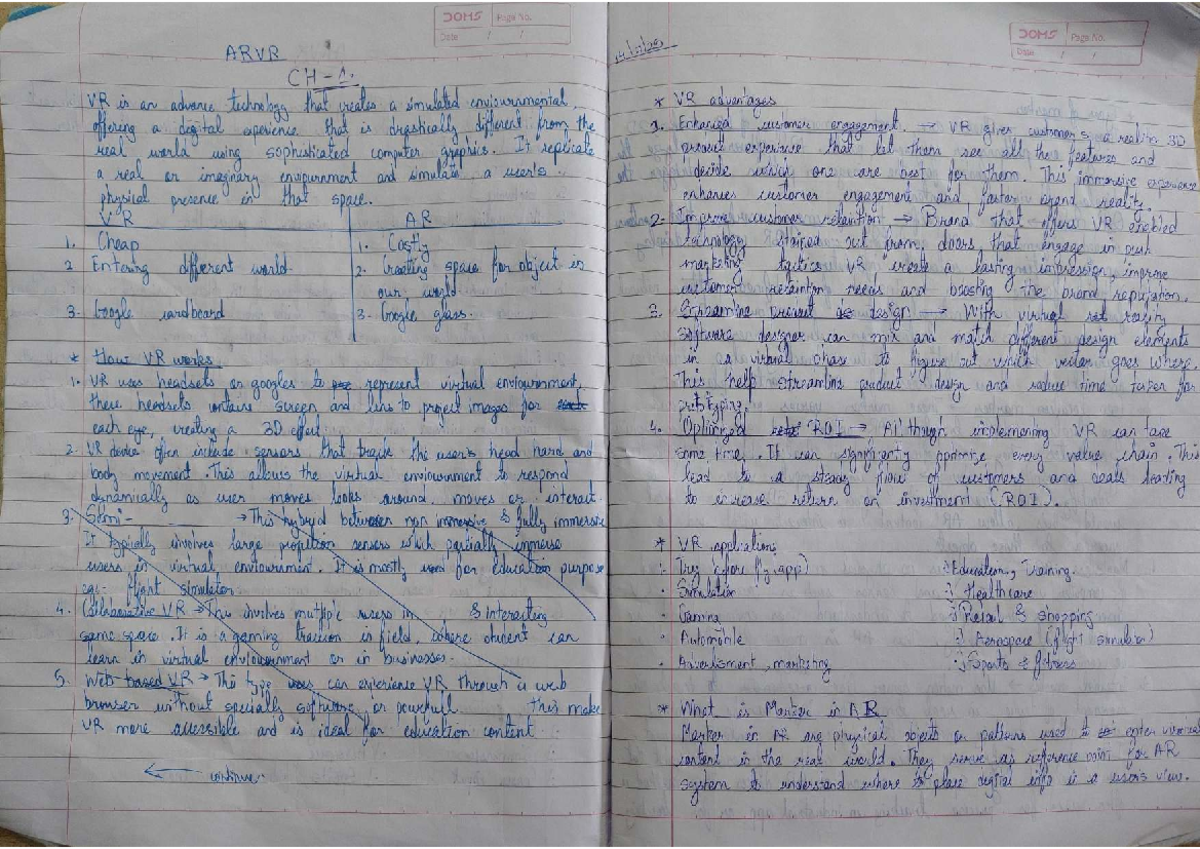 DOMS Page No.
Date / /
ARVR
CH-1.
VR is an advance technology that creates a simulated enviournmental,
offering a digital experience that is drastically different from the
real world using sophisticated computer graphics. It replicate
a real or imaginary enviournment and simulate a user's
physical presence in that space.
VR AR
1. Cheap 1. Costly
2. Entering different world. 2. Creating space for object in
our world
3. Google cardboard 3. Google glass.
* How VR works
1. VR uses headsets or googles to represent virtual enviournment,
these headsets contains screen and lens to project images for
each eye, creating a 3D effect
2. VR device often include sensors that track the user's head hand and
body movement. This allows the virtual enviournment to respond
dynamially as user moves looks around, moves or interact.
3. Semi- → This hybrid between non immersive & fully immersive
It typically involves large projection sensors which partially immerse
users in virtual enviournment. It is mostly used for education purpose
eg:- flight simulator
4. Collaborative VR → This involves multiple users in & interacting
same space. It is a gaming traction is field, where student can
learn in virtual enviournment or in businesses.
5. Web-based VR → This type users can experience VR through a web
browser without specially software or powerfull this make
VR more accessible and is ideal for education content
← continue.
DOMS Page No.
Date / /
* VR advantages
1. Enhanced customer engagement. → VR gives customers a realism 3D
product experience that let them see all the features and
decide which one are best for them. This immersive experience
enhances customer engagement and faster brand reality.
2. Improve customer retaintion → Brand that offers VR enabled
technology stained out from doors that engage in
marketing tactics VR create a lasting impression, improve
customer retaintion needs and boosting the brand reputation.
3. Streamline product design → With virtual reality
software designer can mix and match different design elements
in a virtual phase to figure out which goes where.
This help streamline product design and reduce time taken for
prototyping.
4. Optimized ROI → Al though implementing VR can take
some time. It can significanty optimize every value chain. This
lead to a steady flow of customers and deals leading
to increase return on investment (ROI).
* VR applications
Education, Training.
Simulation Healthcare
Gaming Retail & shopping
Automobile Aerospace (flight simulator)
Advertisment, marketing Sports & fitness
* What is Marker in AR
Marker in AR are physical objects or patterns used to enter
content in the real world. They serve as reference for AR
system to understand where to place digital info in a users view.